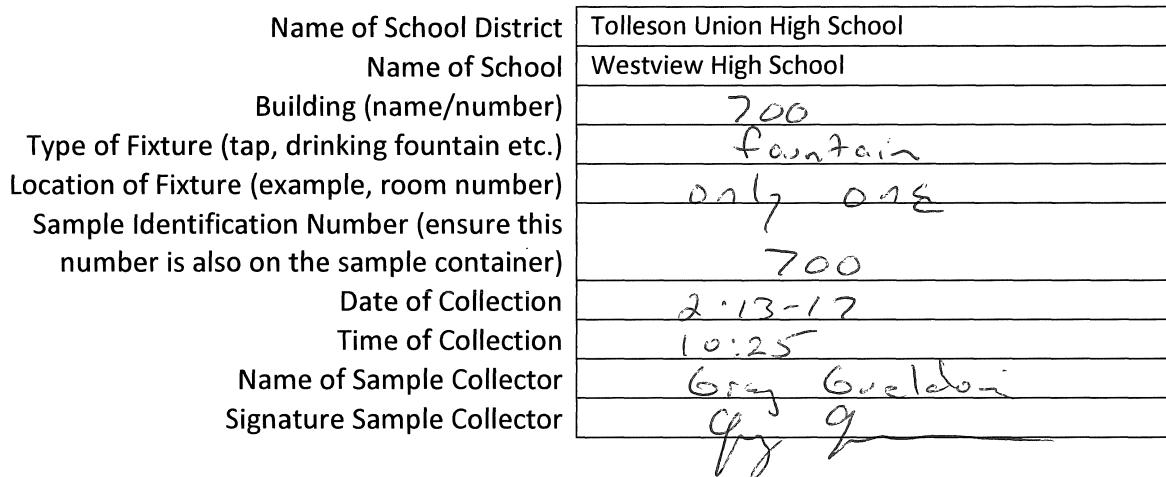 Name of School District Tolleson Union High School
Name of School Westview High School
Building (name/number) 700
Type of Fixture (tap, drinking fountain etc.) fountain
Location of Fixture (example, room number) only one
Sample Identification Number (ensure this
number is also on the sample container) 700
Date of Collection 2-13-17
Time of Collection 10:25
Name of Sample Collector Greg
Signature Sample Collector